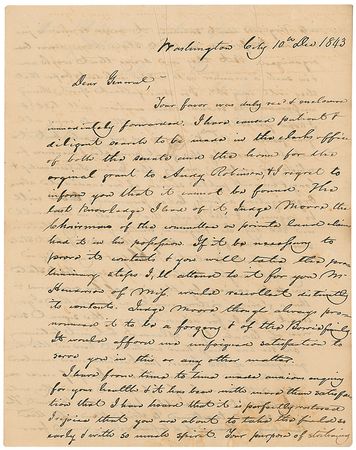 Washington City 10th Dec 1843
Dear General,
Your favor was duly recd & enclosure
immediately forwarded. I have caused patient &
diligent search to be made in the clerks office
of both the senate and the house for the
original grant to Andy Robinson, & I regret to
inform you that it cannot be found. The
last knowledge I had of it, Judge Moore the
Chairman of the committee on private land claims
had it in his possession. If it be necessary to
prove its contents & you will take the
steps I'll attend to it for you Mr
of Miss would recollect distinctly
its contents. Judge Moore though always pro-
nounced it to be a forgery & of the family
It would afford me unfeigned satisfaction to
serve you in this or any other matter.
I have from time to time made anxious enquiry
for your health & it has been with more than satisfac-
tion that I have heard that it is perfectly restored
I rejoice that you are about to take the field so
early & with so much spirit. Your purpose of